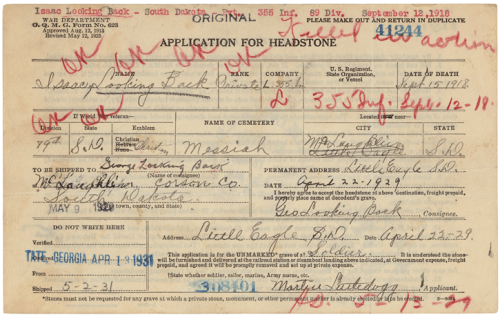 Isaac Looking Back - South Dakota Pvt. 355 Inf. 89 Div. September 12, 1918
WAR DEPARTMENT
O. Q. M. G. Form No. 623
Approved Aug. 12, 1915
Revised May 12, 1923
ORIGINAL
PLEASE MAKE OUT AND RETURN IN DUPLICATE
41244
Killed in action
APPLICATION FOR HEADSTONE
OK OK OK OK
NAME RANK COMPANY U. S. Regiment, State Organization, or Vessel DATE OF DEATH
Isaac Looking Back Private L. 355 In. Sept 15 1918.
L 355 Inf. Sept. 12-18.
OK OK OK
Division State Emblem NAME OF CEMETERY CITY STATE
89th S.D. Christian Messiah McLaughlin Little Eagle S.D.
Hebrew
None
TO BE SHIPPED TO George Looking Back
(Name of consignee)
PERMANENT ADDRESS Little Eagle S.D.
McLaughlin Corson Co.
April 22-1929
South Dakota
(town, county, and state)
MAY 9 1929
I hereby agree to accept the headstone at above destination, freight prepaid, and properly place same at decedent's grave.
Geo Looking Back Consignee.
DO NOT WRITE HERE
Address Little Eagle S.D. Date April 22-29.
Verified
TATE, GEORGIA APR 13 1931
This application is for the UNMARKED grave of a Soldier. It is understood the stone will be furnished and delivered at the railroad station or steamboat landing above indicated, at Government expense, freight prepaid, and agreed it will be promptly removed and set up at private expense.
5-2-31
(State whether soldier, sailor, marine, Army nurse, etc.
308401
Applicant.
5-13-29